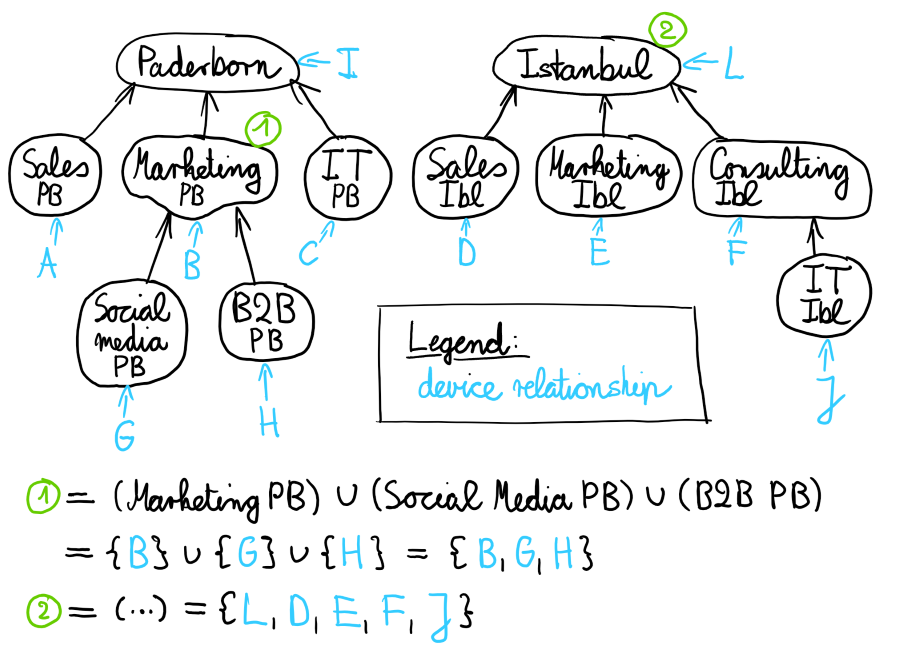 2
Paderborn
I
Istanbul
L
1
Sales
PB
Marketing
PB
IT
PB
Sales
Ibl
Marketing
Ibl
Consulting
Ibl
A
B
C
D
E
F
Social
media
PB
B2B
PB
IT
Ibl
Legend:
device relationship
G
H
J
1 = (Marketing PB) ∪ (Social Media PB) ∪ (B2B PB)
= {B} ∪ {G} ∪ {H} = {B, G, H}
2 = (...) = {L, D, E, F, J}